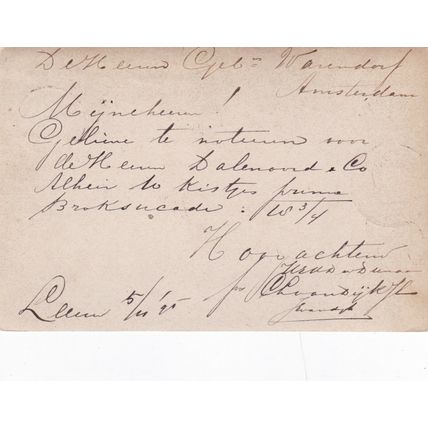 De Heeren Gebrs Warendorf
Amsterdam
Mijneheeren!
Gelieve te noteeren voor
de Heeren Dalenoord & Co
Alhier 10 kistjes prima
Broksucade : 18 3/4
Hoogachtend
UEd Dw Dienaar
p Ch van Dijk
Leeuw 5/11 '95